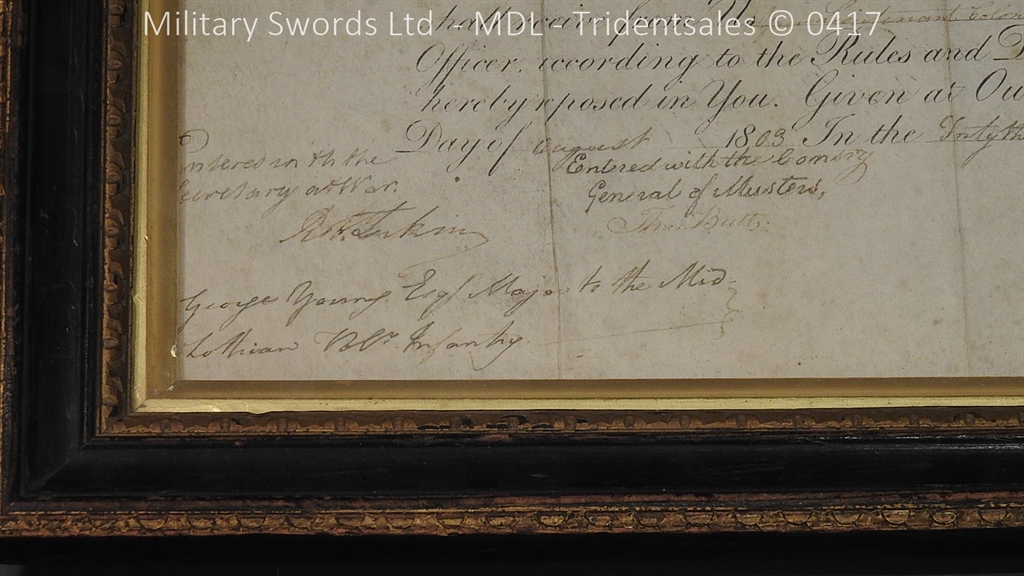 Military Swords Ltd - MDL - Tridentsales © 0417
hall receive from You Lieutenant Colon
Officer, according to the Rules and D
hereby reposed in You. Given at Ou
Day of August 1803 In the Fortyth
Entered with the
Secretary at War.
Entered with the Comsry
General of Musters,
Tho. Butts.
George Young Esqr Major to the Mid-
Lothian Infantry